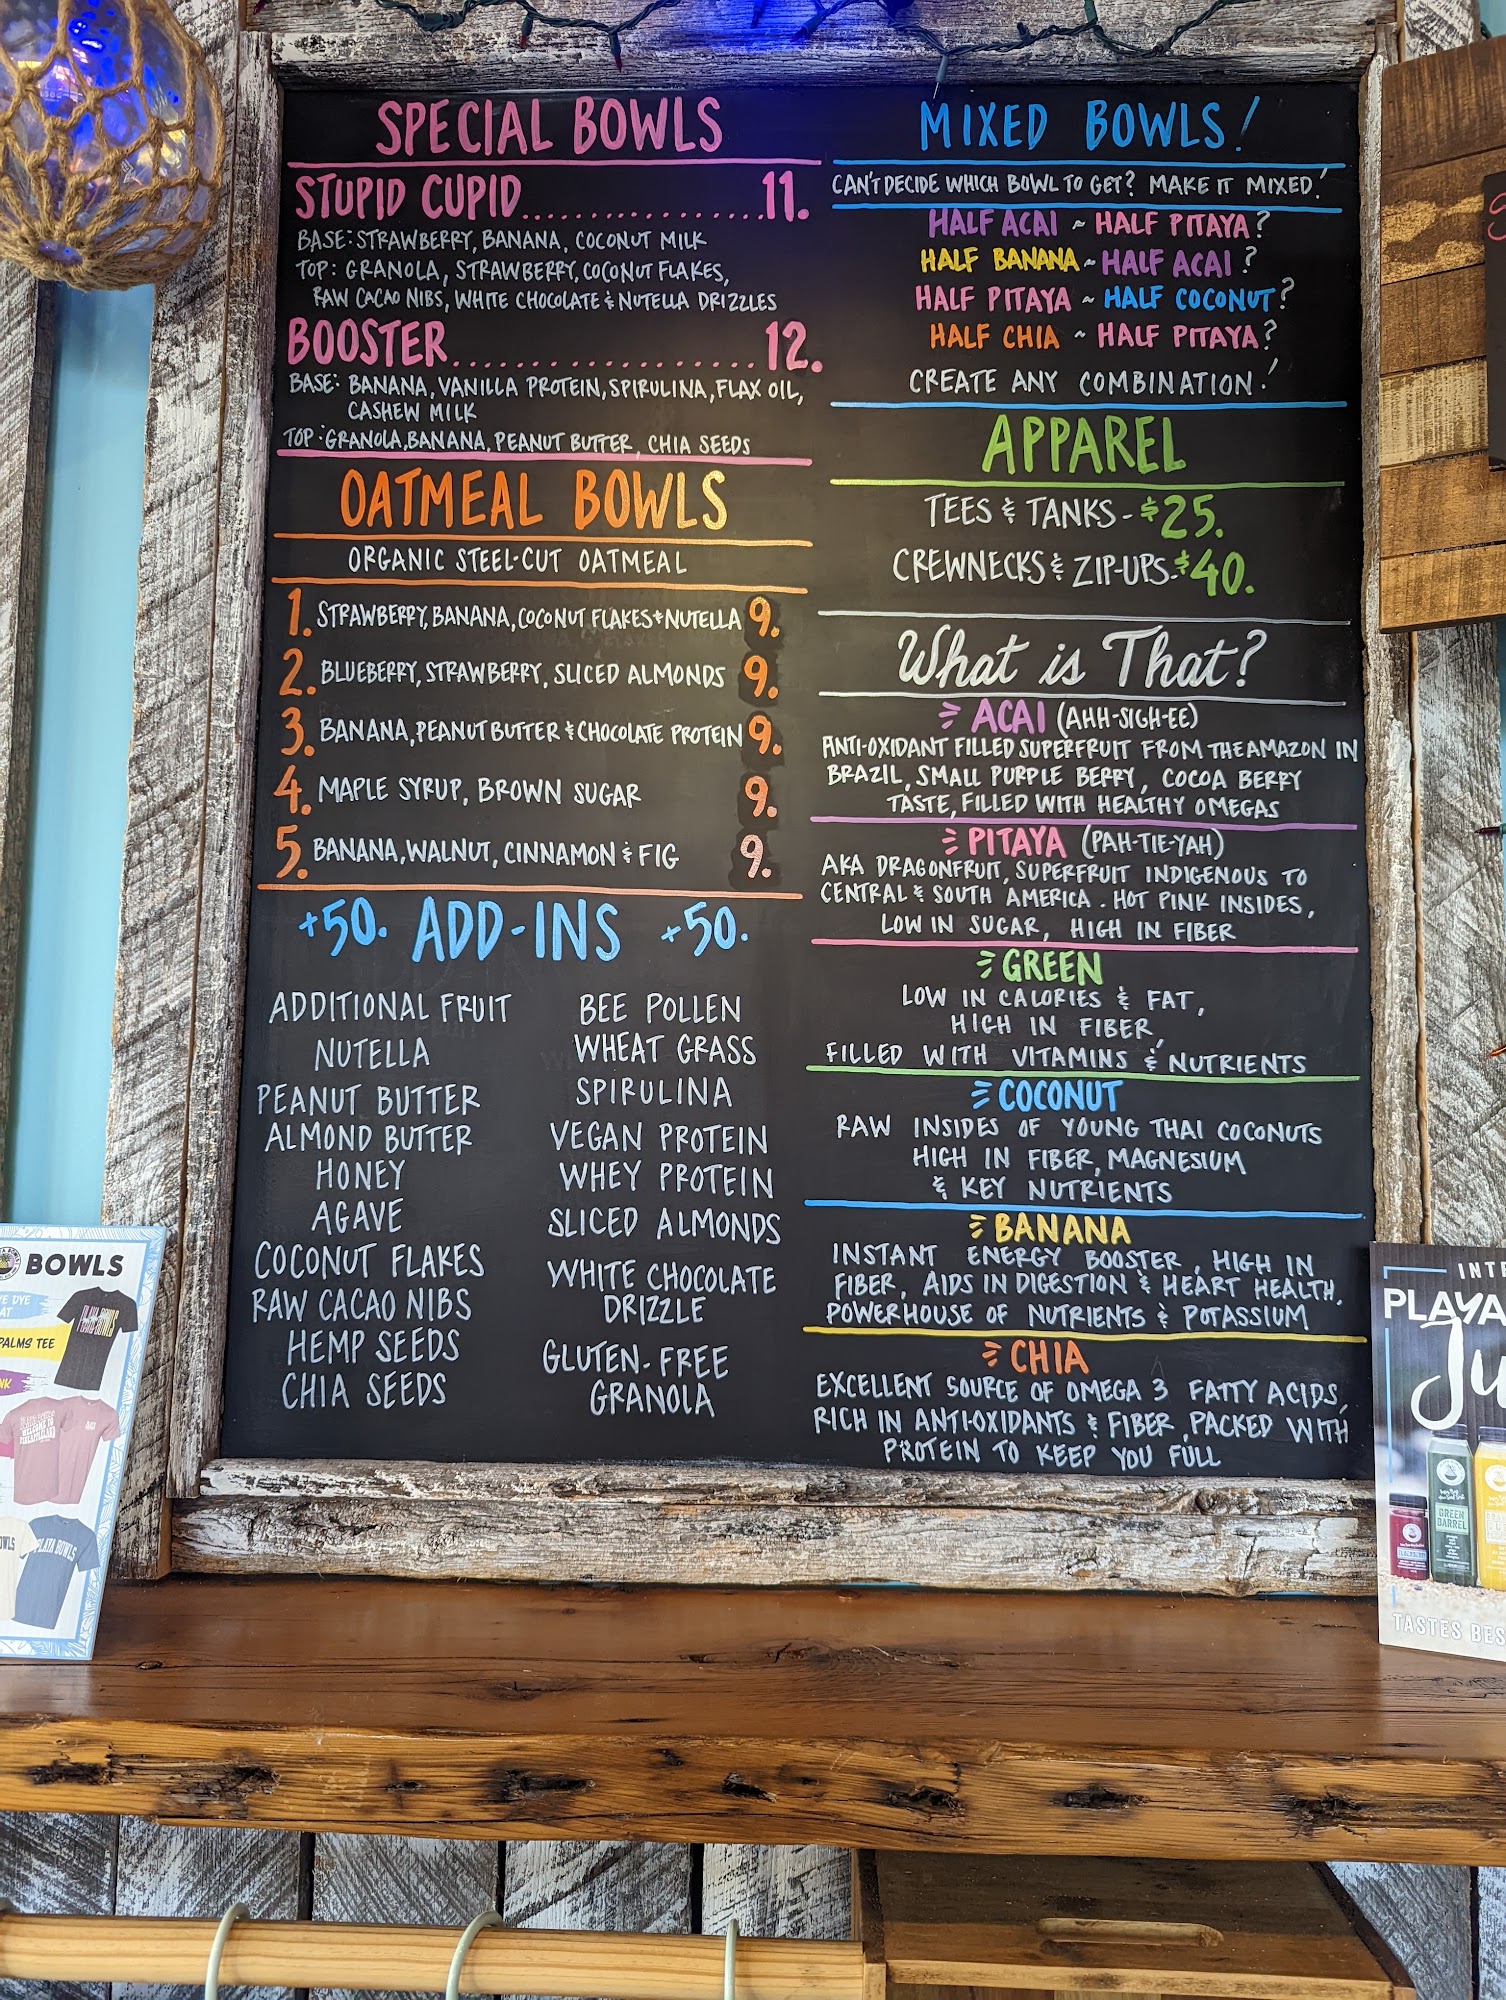 SPECIAL BOWLS
STUPID CUPID..................11.
BASE: STRAWBERRY, BANANA, COCONUT MILK
TOP: GRANOLA, STRAWBERRY, COCONUT FLAKES,
RAW CACAO NIBS, WHITE CHOCOLATE & NUTELLA DRIZZLES
BOOSTER....................12.
BASE: BANANA, VANILLA PROTEIN, SPIRULINA, FLAX OIL,
CASHEW MILK
TOP: GRANOLA, BANANA, PEANUT BUTTER, CHIA SEEDS
OATMEAL BOWLS
ORGANIC STEEL-CUT OATMEAL
1. STRAWBERRY, BANANA, COCONUT FLAKES + NUTELLA 9.
2. BLUEBERRY, STRAWBERRY, SLICED ALMONDS 9.
3. BANANA, PEANUT BUTTER & CHOCOLATE PROTEIN 9.
4. MAPLE SYRUP, BROWN SUGAR 9.
5. BANANA, WALNUT, CINNAMON & FIG 9.
+50. ADD-INS +50.
ADDITIONAL FRUIT
NUTELLA
PEANUT BUTTER
ALMOND BUTTER
HONEY
AGAVE
COCONUT FLAKES
RAW CACAO NIBS
HEMP SEEDS
CHIA SEEDS
BEE POLLEN
WHEAT GRASS
SPIRULINA
VEGAN PROTEIN
WHEY PROTEIN
SLICED ALMONDS
WHITE CHOCOLATE
DRIZZLE
GLUTEN-FREE
GRANOLA
MIXED BOWLS!
CAN'T DECIDE WHICH BOWL TO GET? MAKE IT MIXED!
HALF ACAI ~ HALF PITAYA?
HALF BANANA ~ HALF ACAI?
HALF PITAYA ~ HALF COCONUT?
HALF CHIA ~ HALF PITAYA?
CREATE ANY COMBINATION!
APPAREL
TEES & TANKS - $25.
CREWNECKS & ZIP-UPS - $40.
What is That?
ACAI (AHH-SIGH-EE)
ANTI-OXIDANT FILLED SUPERFRUIT FROM THE AMAZON IN
BRAZIL, SMALL PURPLE BERRY, COCOA BERRY
TASTE, FILLED WITH HEALTHY OMEGAS
PITAYA (PAH-TIE-YAH)
AKA DRAGONFRUIT, SUPERFRUIT INDIGENOUS TO
CENTRAL & SOUTH AMERICA. HOT PINK INSIDES,
LOW IN SUGAR, HIGH IN FIBER
GREEN
LOW IN CALORIES & FAT,
HIGH IN FIBER,
FILLED WITH VITAMINS & NUTRIENTS
COCONUT
RAW INSIDES OF YOUNG THAI COCONUTS
HIGH IN FIBER, MAGNESIUM
& KEY NUTRIENTS
BANANA
INSTANT ENERGY BOOSTER, HIGH IN
FIBER, AIDS IN DIGESTION & HEART HEALTH,
POWERHOUSE OF NUTRIENTS & POTASSIUM
CHIA
EXCELLENT SOURCE OF OMEGA 3 FATTY ACIDS,
RICH IN ANTI-OXIDANTS & FIBER, PACKED WITH
PROTEIN TO KEEP YOU FULL
BOWLS
PALMS TEE
PLAYA BOWLS
INTR
PLAYA
Ju
GREEN
BARREL
TASTES BES